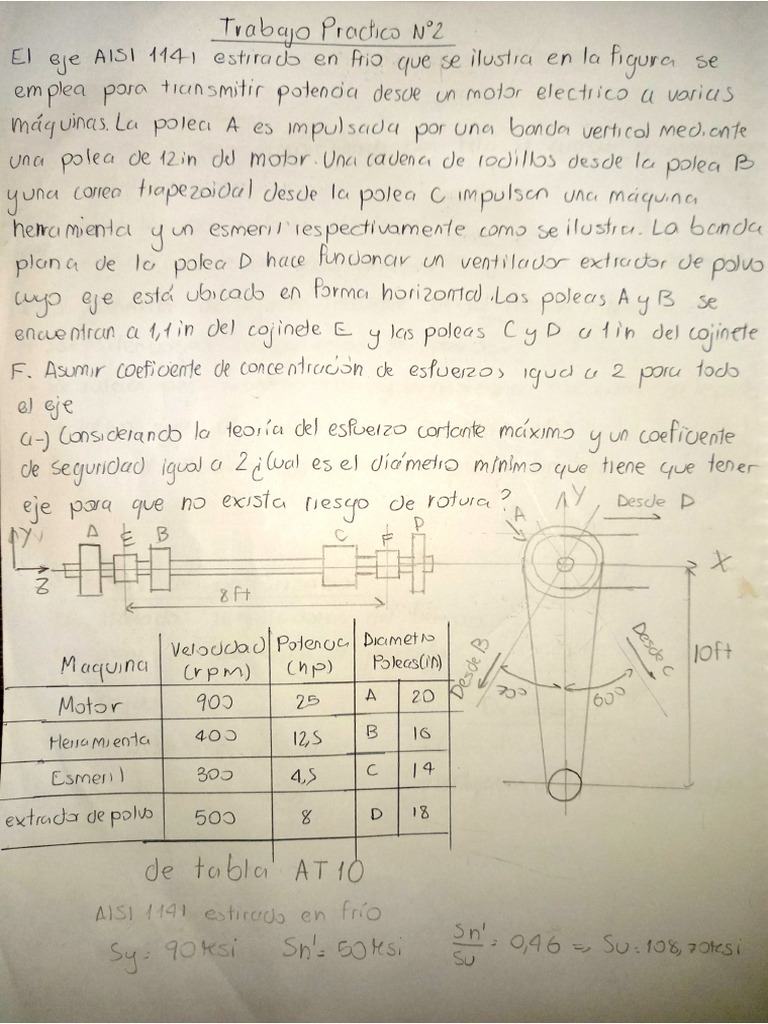 Trabajo Practico N°2
El eje AISI 1141 estirado en frio que se ilustra en la figura se
emplea para transmitir potencia desde un motor electrico a varias
máquinas. La polea A es impulsada por una banda vertical mediante
una polea de 12in del motor. Una cadena de rodillos desde la polea B
y una correa trapezoidal desde la polea C impulsan una máquina
herramienta y un esmeril respectivamente como se ilustra. La banda
plana de la polea D hace funcionar un ventilador extractor de polvo
cuyo eje está ubicado en forma horizontal. Las poleas A y B se
encuentran a 1,1in del cojinete E y las poleas C y D a 1in del cojinete
F. Asumir coeficiente de concentración de esfuerzos igual a 2 para todo
el eje
a-) Considerando la teoría del esfuerzo cortante máximo y un coeficiente
de seguridad igual a 2 ¿Cual es el diámetro mínimo que tiene que tener
eje para que no exista riesgo de rotura?
Y
Desde D
A
Y
A
E
B
C
F
D
Z
X
8ft
10ft
Desde B
Desde C
Maquina
Velocidad (rpm)
Potencia (hp)
Diametro Poleas(in)
Motor 900 25 A 20
Herramienta 400 12,5 B 16
Esmeril 300 4,5 C 14
extractor de polvo 500 8 D 18
de tabla AT10
AISI 1141 estirado en frío
Sy= 90 ksi Sn'= 50 ksi Sn'/Su = 0,46 => Su=108,70ksi